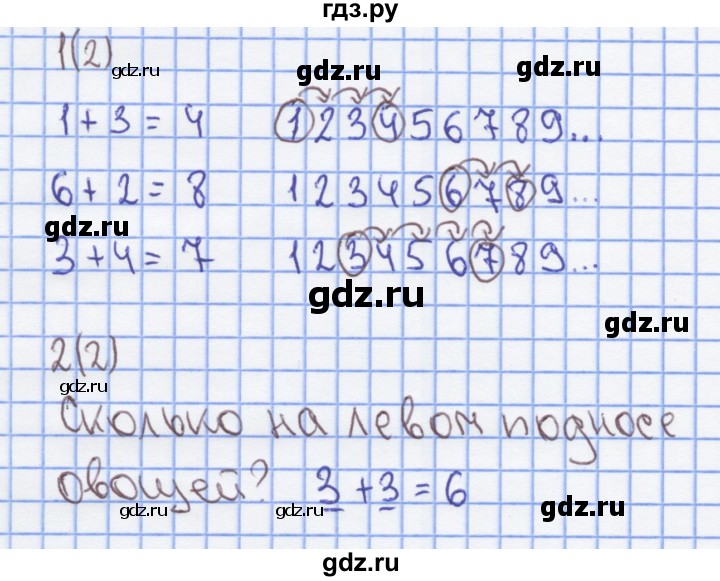 гдз.ру
1(2)
gdz.ru gdz.ru gdz.ru
1 + 3 = 4 1 2 3 4 5 6 7 8 9...
6 + 2 = 8 1 2 3 4 5 6 7 8 9...
gdz.ru
3 + 4 = 7 1 2 3 4 5 6 7 8 9...
gdz.ru
gdz.ru
2(2)
gdz.ru
Сколько на левом подносе
овощей? 3 + 3 = 6
gdz.ru gdz.ru gdz.ru
gdz.ru